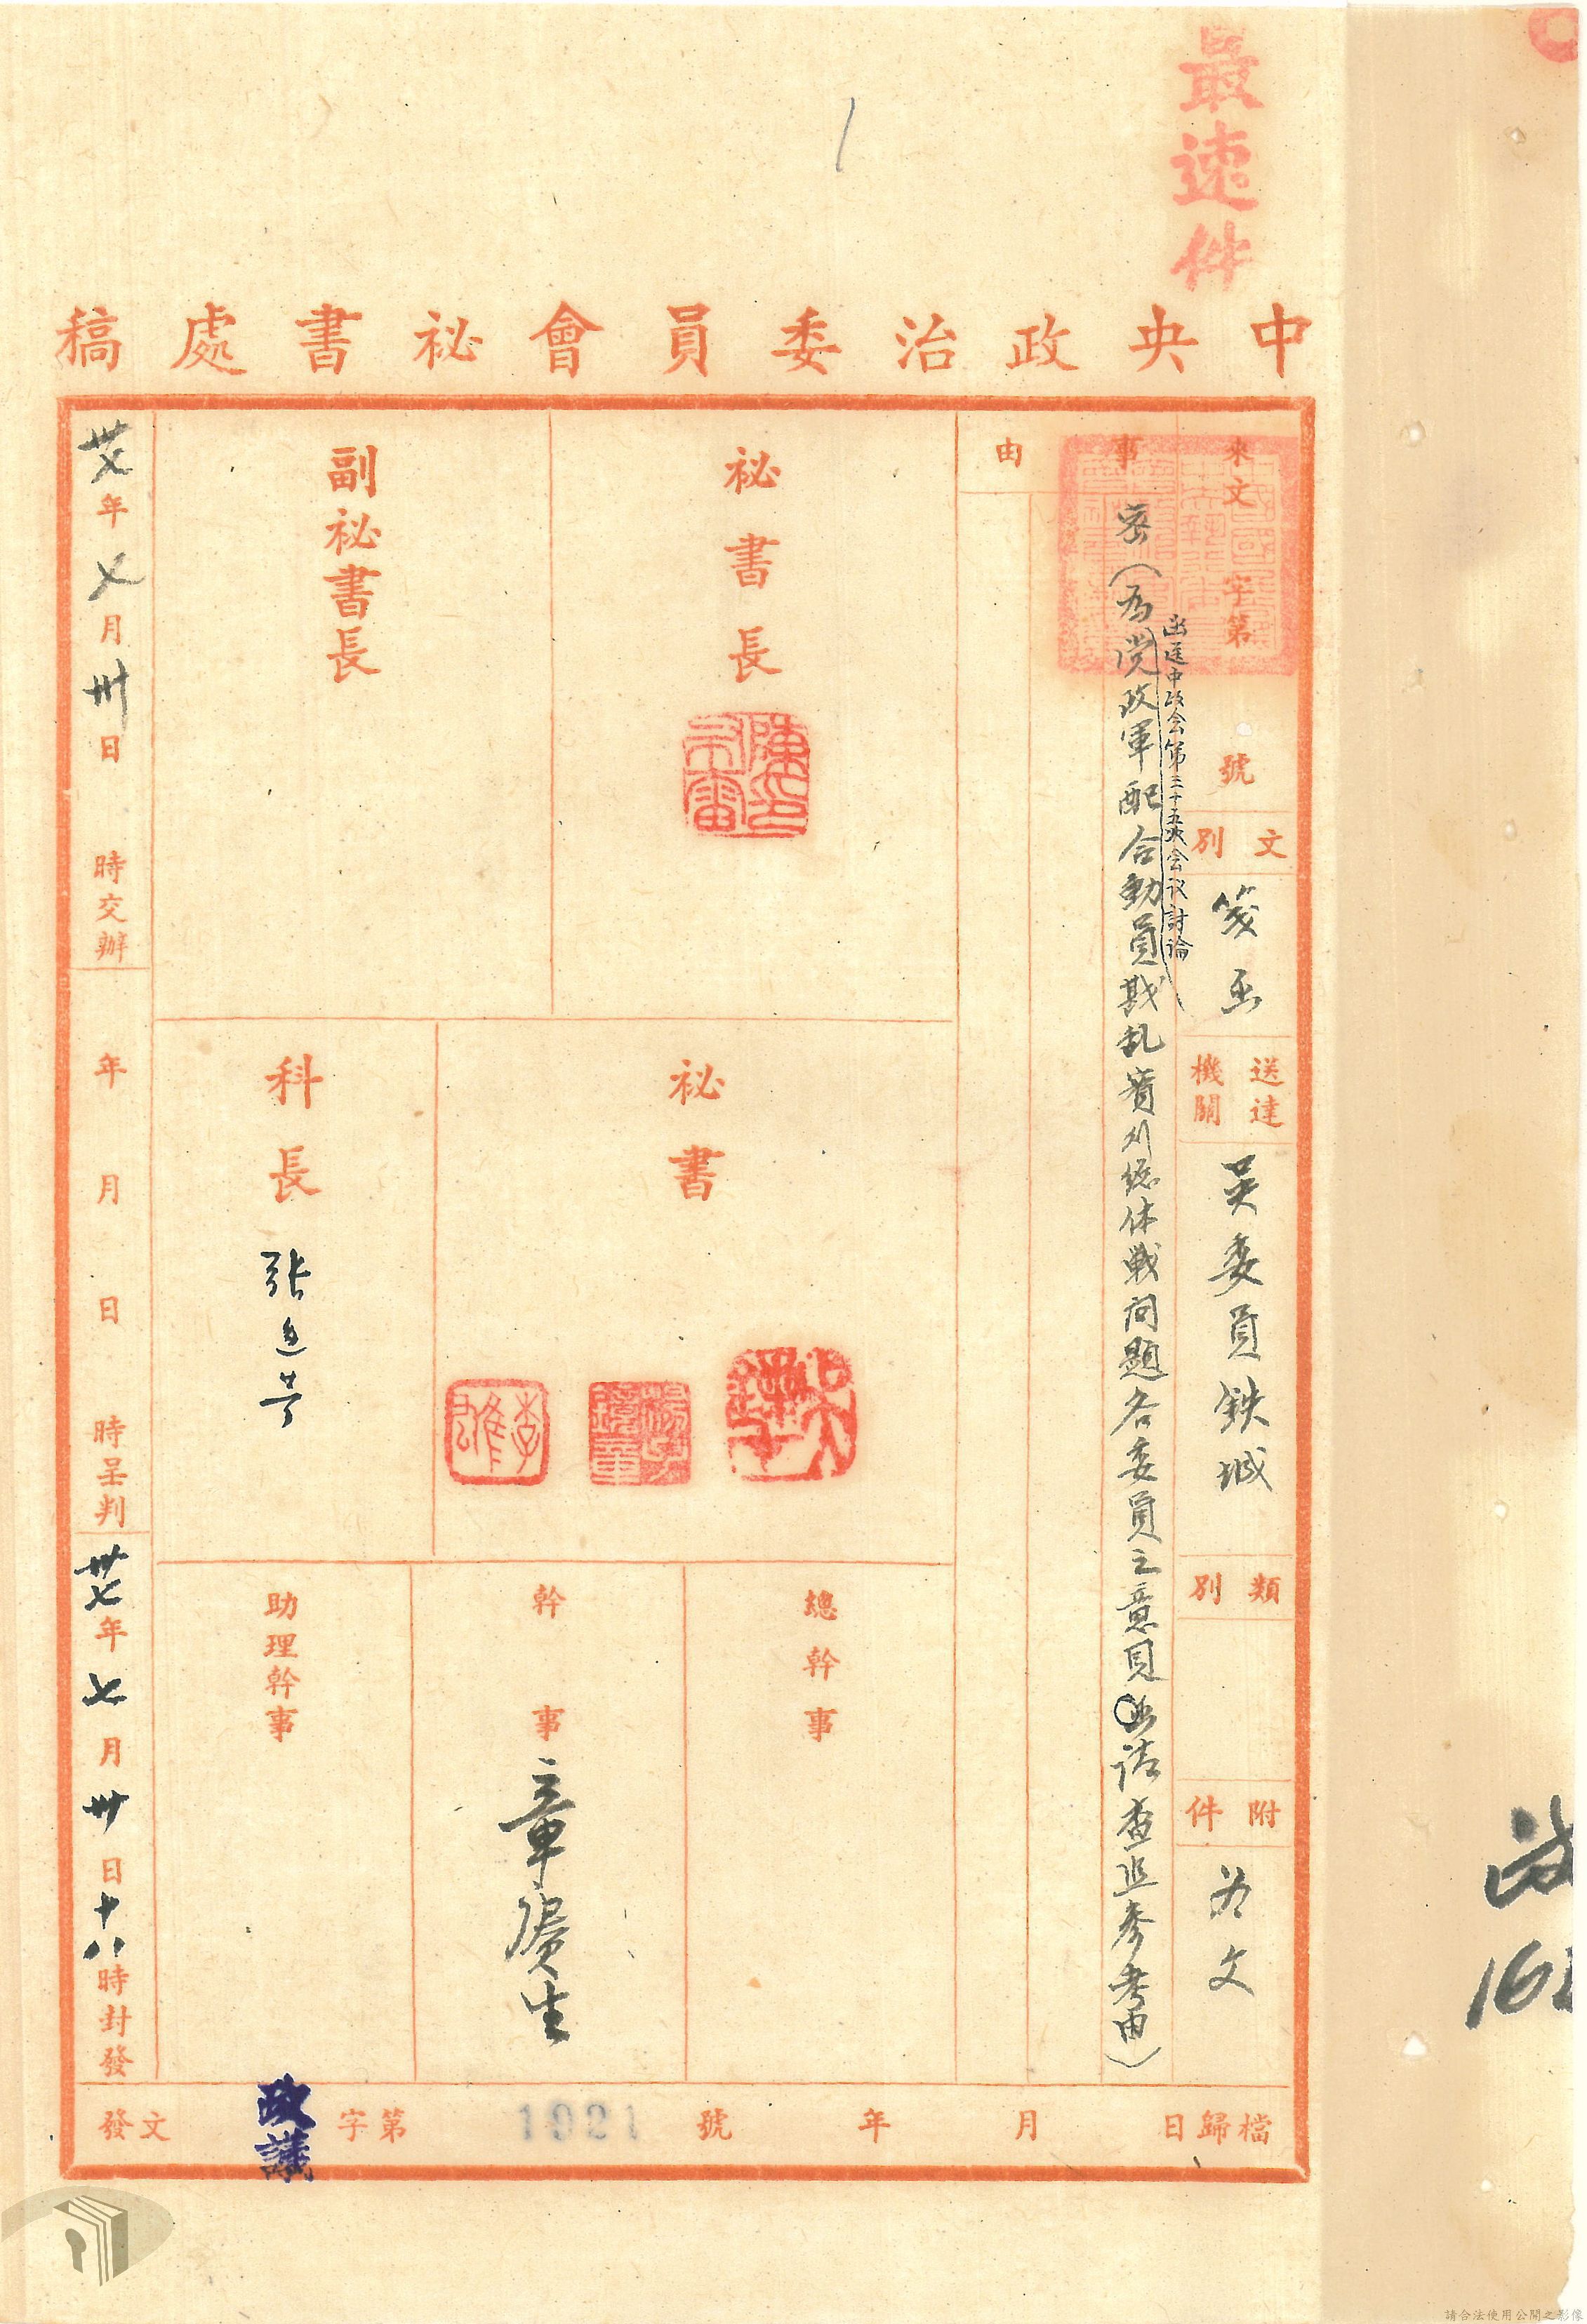 最速件
中央政治委員會祕書處稿
來文 字第 號
文別
箋函
送達機關
吳委員鉄城
類別
附件
為文
事由
密(為
函送中政会第三十五次会议討論
党政軍配合動員戡乱實刈總体戰问題各委員之意見
請查照參考由)
祕書長
副祕書長
祕書
科長
總幹事
幹事
章廣生
助理幹事
卅七年七月卅日 時交辦
年 月 日 時呈判
卅七年七月卅日十八時封發
檔歸日 月 年
號 1021 第字 政議 文發
請合法使用公開之影像